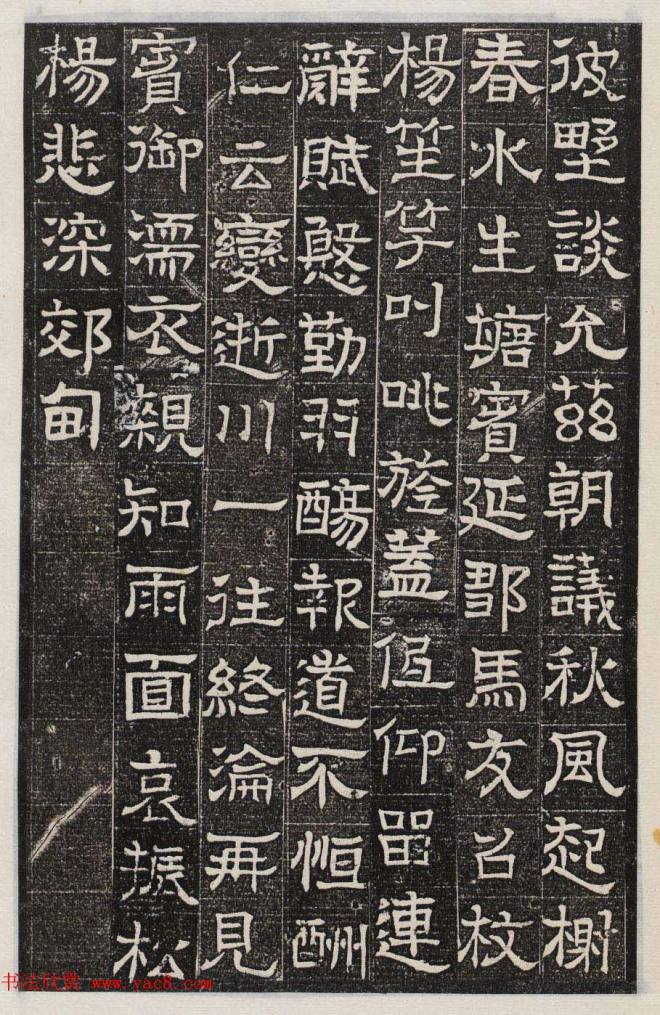 彼墅談允茲朝議秋風起榭
春水生塘賓延鄒馬友召枚
楊笙竽叫咷旌蓋低仰罍連
辭賦慇勤羽觴報道不恒酬
仁云變逝川一往終淪再見
賓御濡衣親知雨面哀振松
楊悲深郊甸
书法欣赏 www.yac8.com